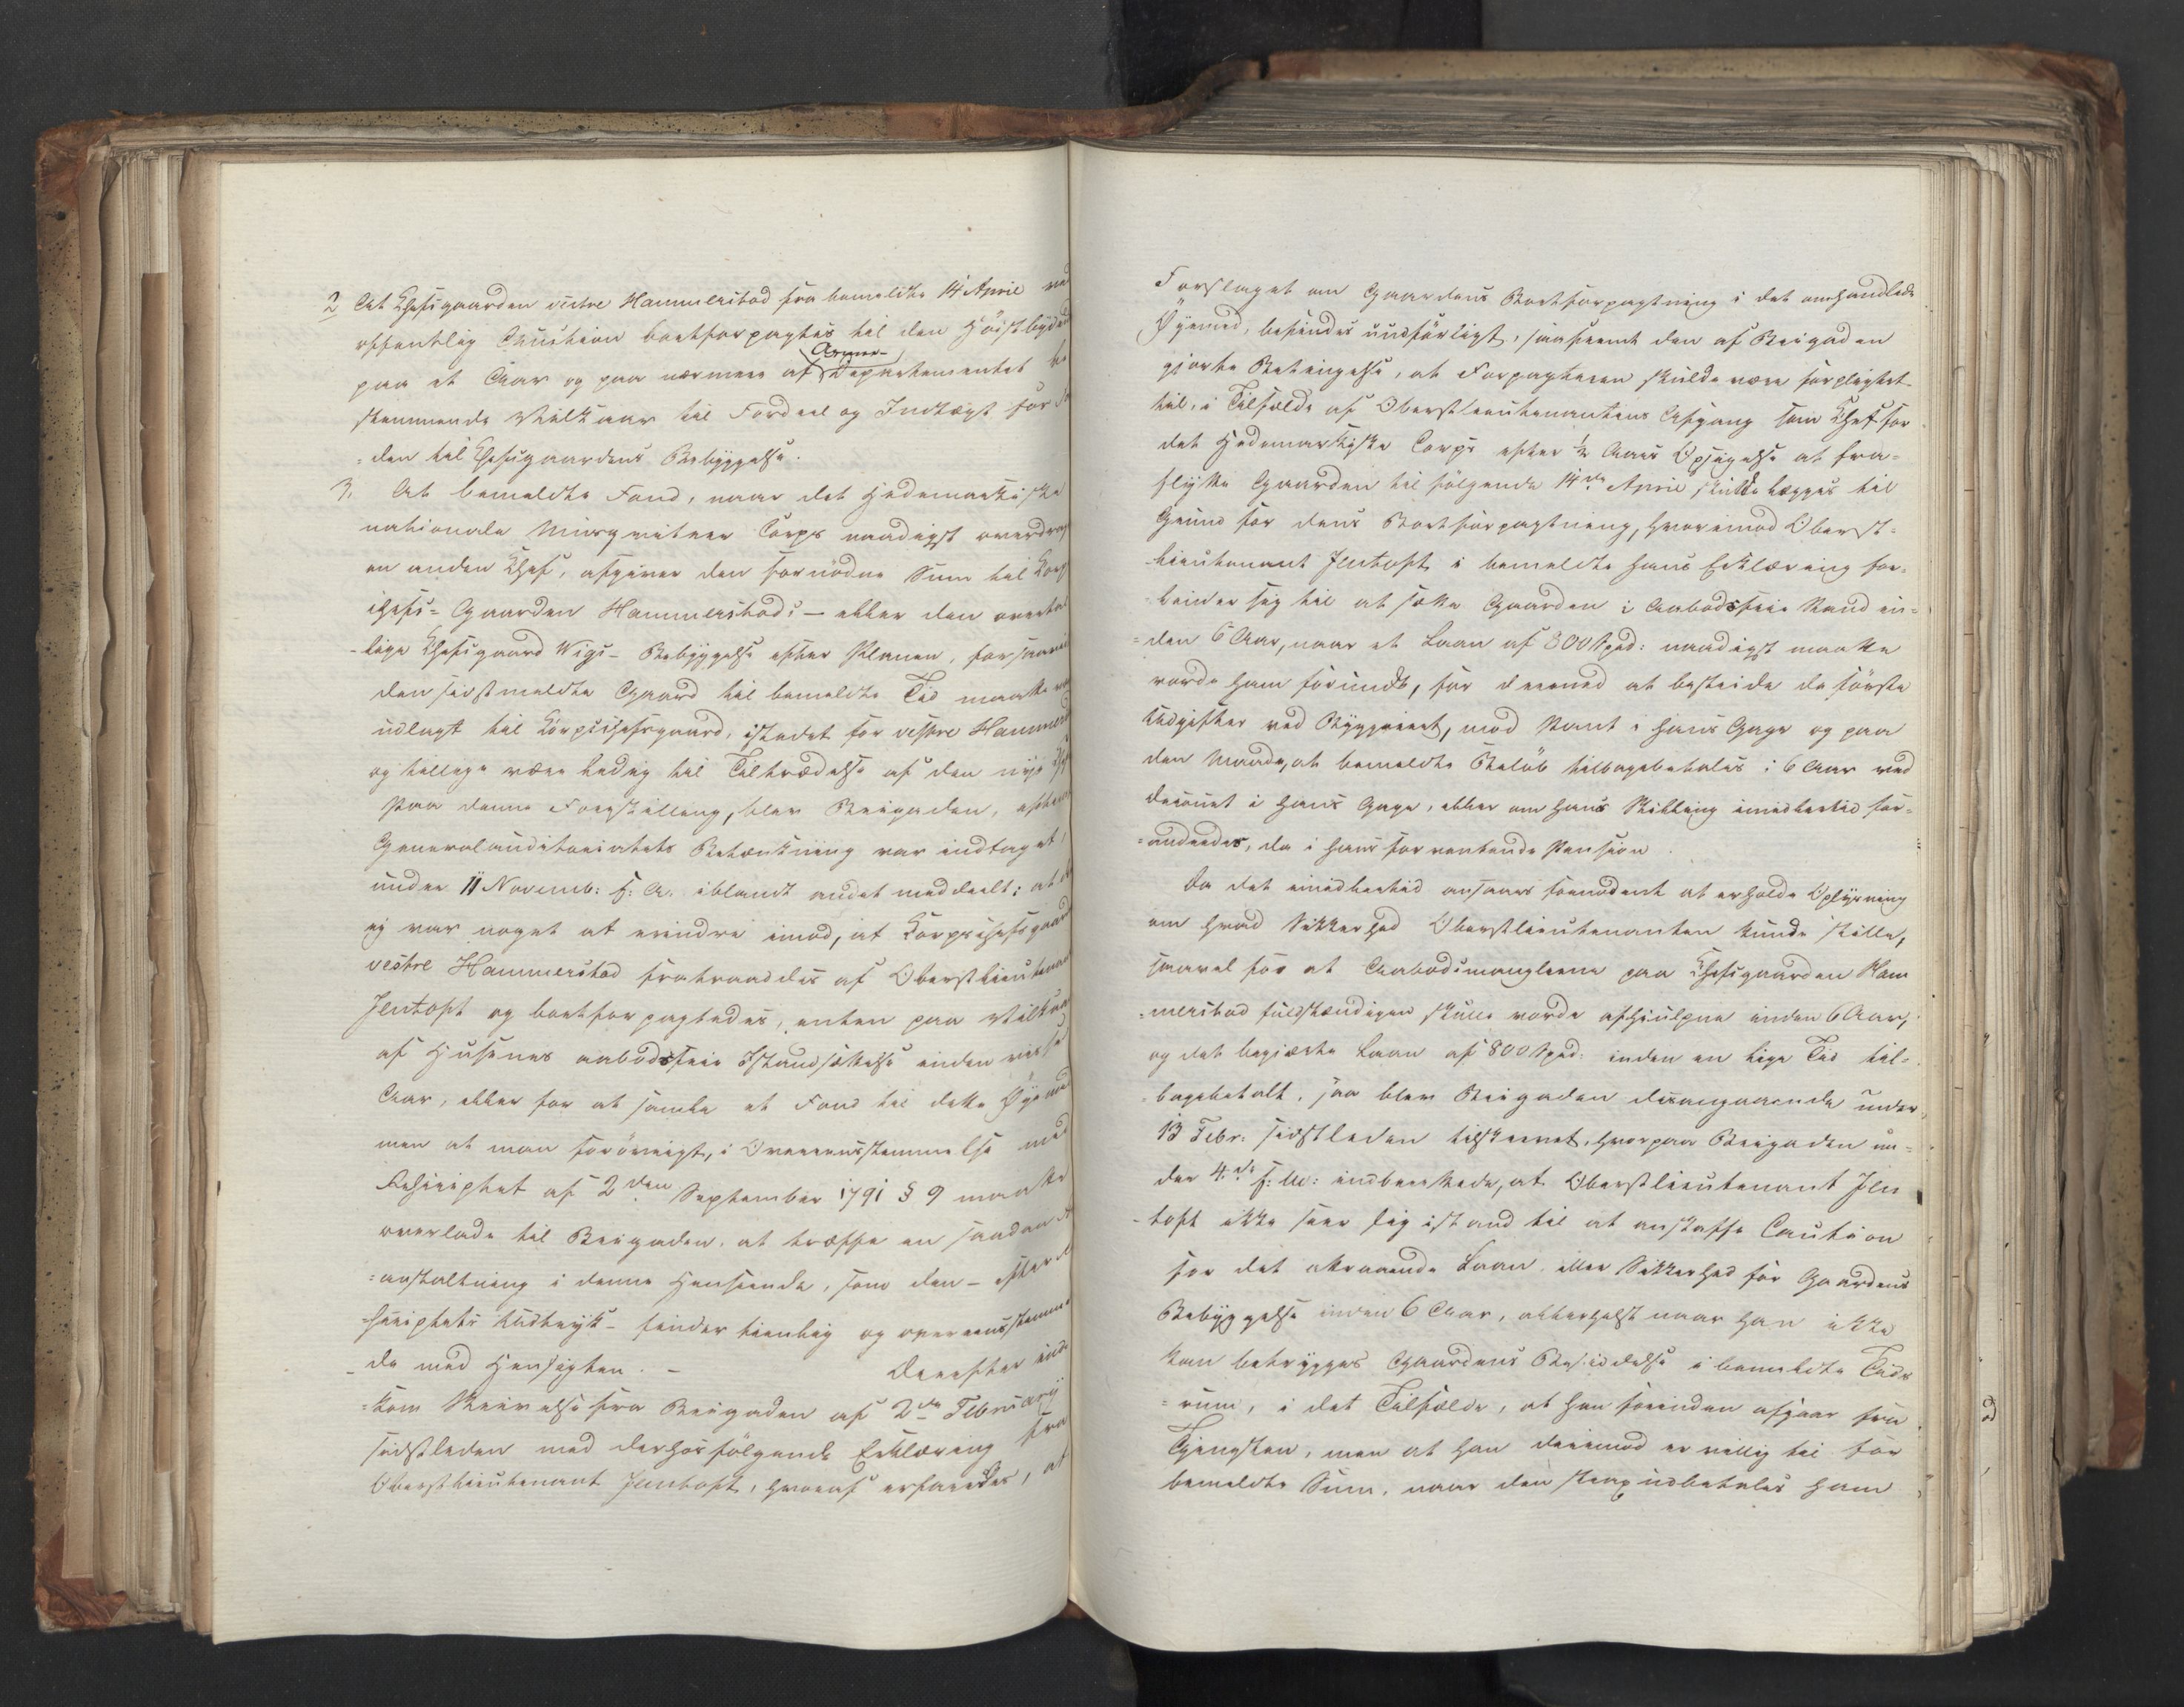 2 At Chefsgaarden vestre Hammerstad fra bemeldte 14 April ved
offentlig Auction bortforpagtes til den Höistbydend
paa et Aar og paa nærmere af Armee- Departementet be
stemmende Vilkaar til Fordeel og Indtægt for Fo
=den til Chefsgaardens Bebyggelse.
3. At bemeldte Fond, naar det Hedemarkiske
nationale Musqueteer Corps naadigst overdrag
en anden Chef, afgiver den fornödne Sum til Corps
chefs-Gaarden Hammerstads – eller den overtal
-lige Chefsgaard Wigs – Bebyggelse efter Planen, forsaavid
den sidstmeldte Gaard til bemeldte Tid maatte
udlagt til Corpschefsgaard, istedet for vestre Hammerst
og tillige være ledig til Tiltrædelse af den nye Chef
Paa denne Forestilling, blev Brigaden, efter
Generalauditoriatets Betænkning var indtaget,
under 11 Novemb: f: A. iblandt andet meddeelt: at d
ei var noget at erindre imod, at Corpschefsgaard
vestre Hammerstad fratraaddes af Oberstlieutenant
Jentoft og bortforpagtedes, enten paa Vilkaar
af Husenes aabodsfrie Istandsættelse inden visse
Aar, eller for at samle et Fond til dette Öyemed
men at man forövrigt, i Overeensstemmelse med
Rescriptet af 2den September 1791 § 9 maatte
overlade til Brigaden, at træffe en saadan F
=anstaltning i denne Henseende, som den – efter R
=scriptets Udtryk – finder tienlig og overeensstemme
=de med Hensigten. – Derefter ind
=kom Skrivelse fra Brigaden af 2de Februarij
sidstleden med derhos fölgende Erklæring fra
Oberstlieutenant Jentoft, hvoraf erfaredes, at
Forslaget om Gaardens Bortforpagtning i det omhandlede
Öyemed, befindes uudförligt, saafremt den af Brigaden
gjorte Betingelse, at Forpagteren skulde være forpligtet
til, i Tilfælde af Oberstlieutenantens Afgang som Chef for
det Hedemarkiske Corps efter ½ Aars Opsigelse at fra=
flytte Gaarden til fölgende 14de April, skulde lægges til
Grund for dens Bortforpagtning, hvorimod Oberst=
-lieutenant Jentoft i bemeldte hans Erklæring for=
binder sig til at sætte Gaarden i aabodsfrie Stand in=
=den 6 Aar, naar et Laan af 800 Spd: naadigst maatte
vorde ham forundt, for dermed at bestride de förste
Udgifter ved Byggeriet, mod Pant i hans Gage og paa
den Maade, at bemeldte Belöb tilbagebetales i 6 Aar ved
decourt i hans Gage, eller om hans Stilling imidlertid for=
=andredes, da i hans forventende Pension.
Da det imidlertid ansaaes fornödent at erholde Oplysning
om hvad Sikkerhed Oberstlieutenanten kunde stille,
saavel for at Aabodsmanglerne paa Chefsgaarden Ham
=merstad fuldstændigen skulle vorde afhiulpne inden 6 Aar,
og det begiærte Laan af 800 Spd: inden en lige Tid til=
-bagebetalt, saa blev Brigaden desangaaende under
13 Febr: sidstleden tilskrevet, hvorpaa Brigaden un=
der 4de f: M: indberettede, at Oberstlieutenant Jen
-toft ikke seer sig istand til at anskaffe Caution
for det attraaende Laan, eller Sikkerhed for Gaardens
Bebyggelse inden 6 Aar, allerhelst naar han ikke
kan betrygges Gaardens Besiddelse i bemeldte Tids
=rum, i det Tilfælde, at han forinden afgaar fra
Tjenesten, men at han derimod er villig til for
bemeldte Sum, naar den strax udbetales ham